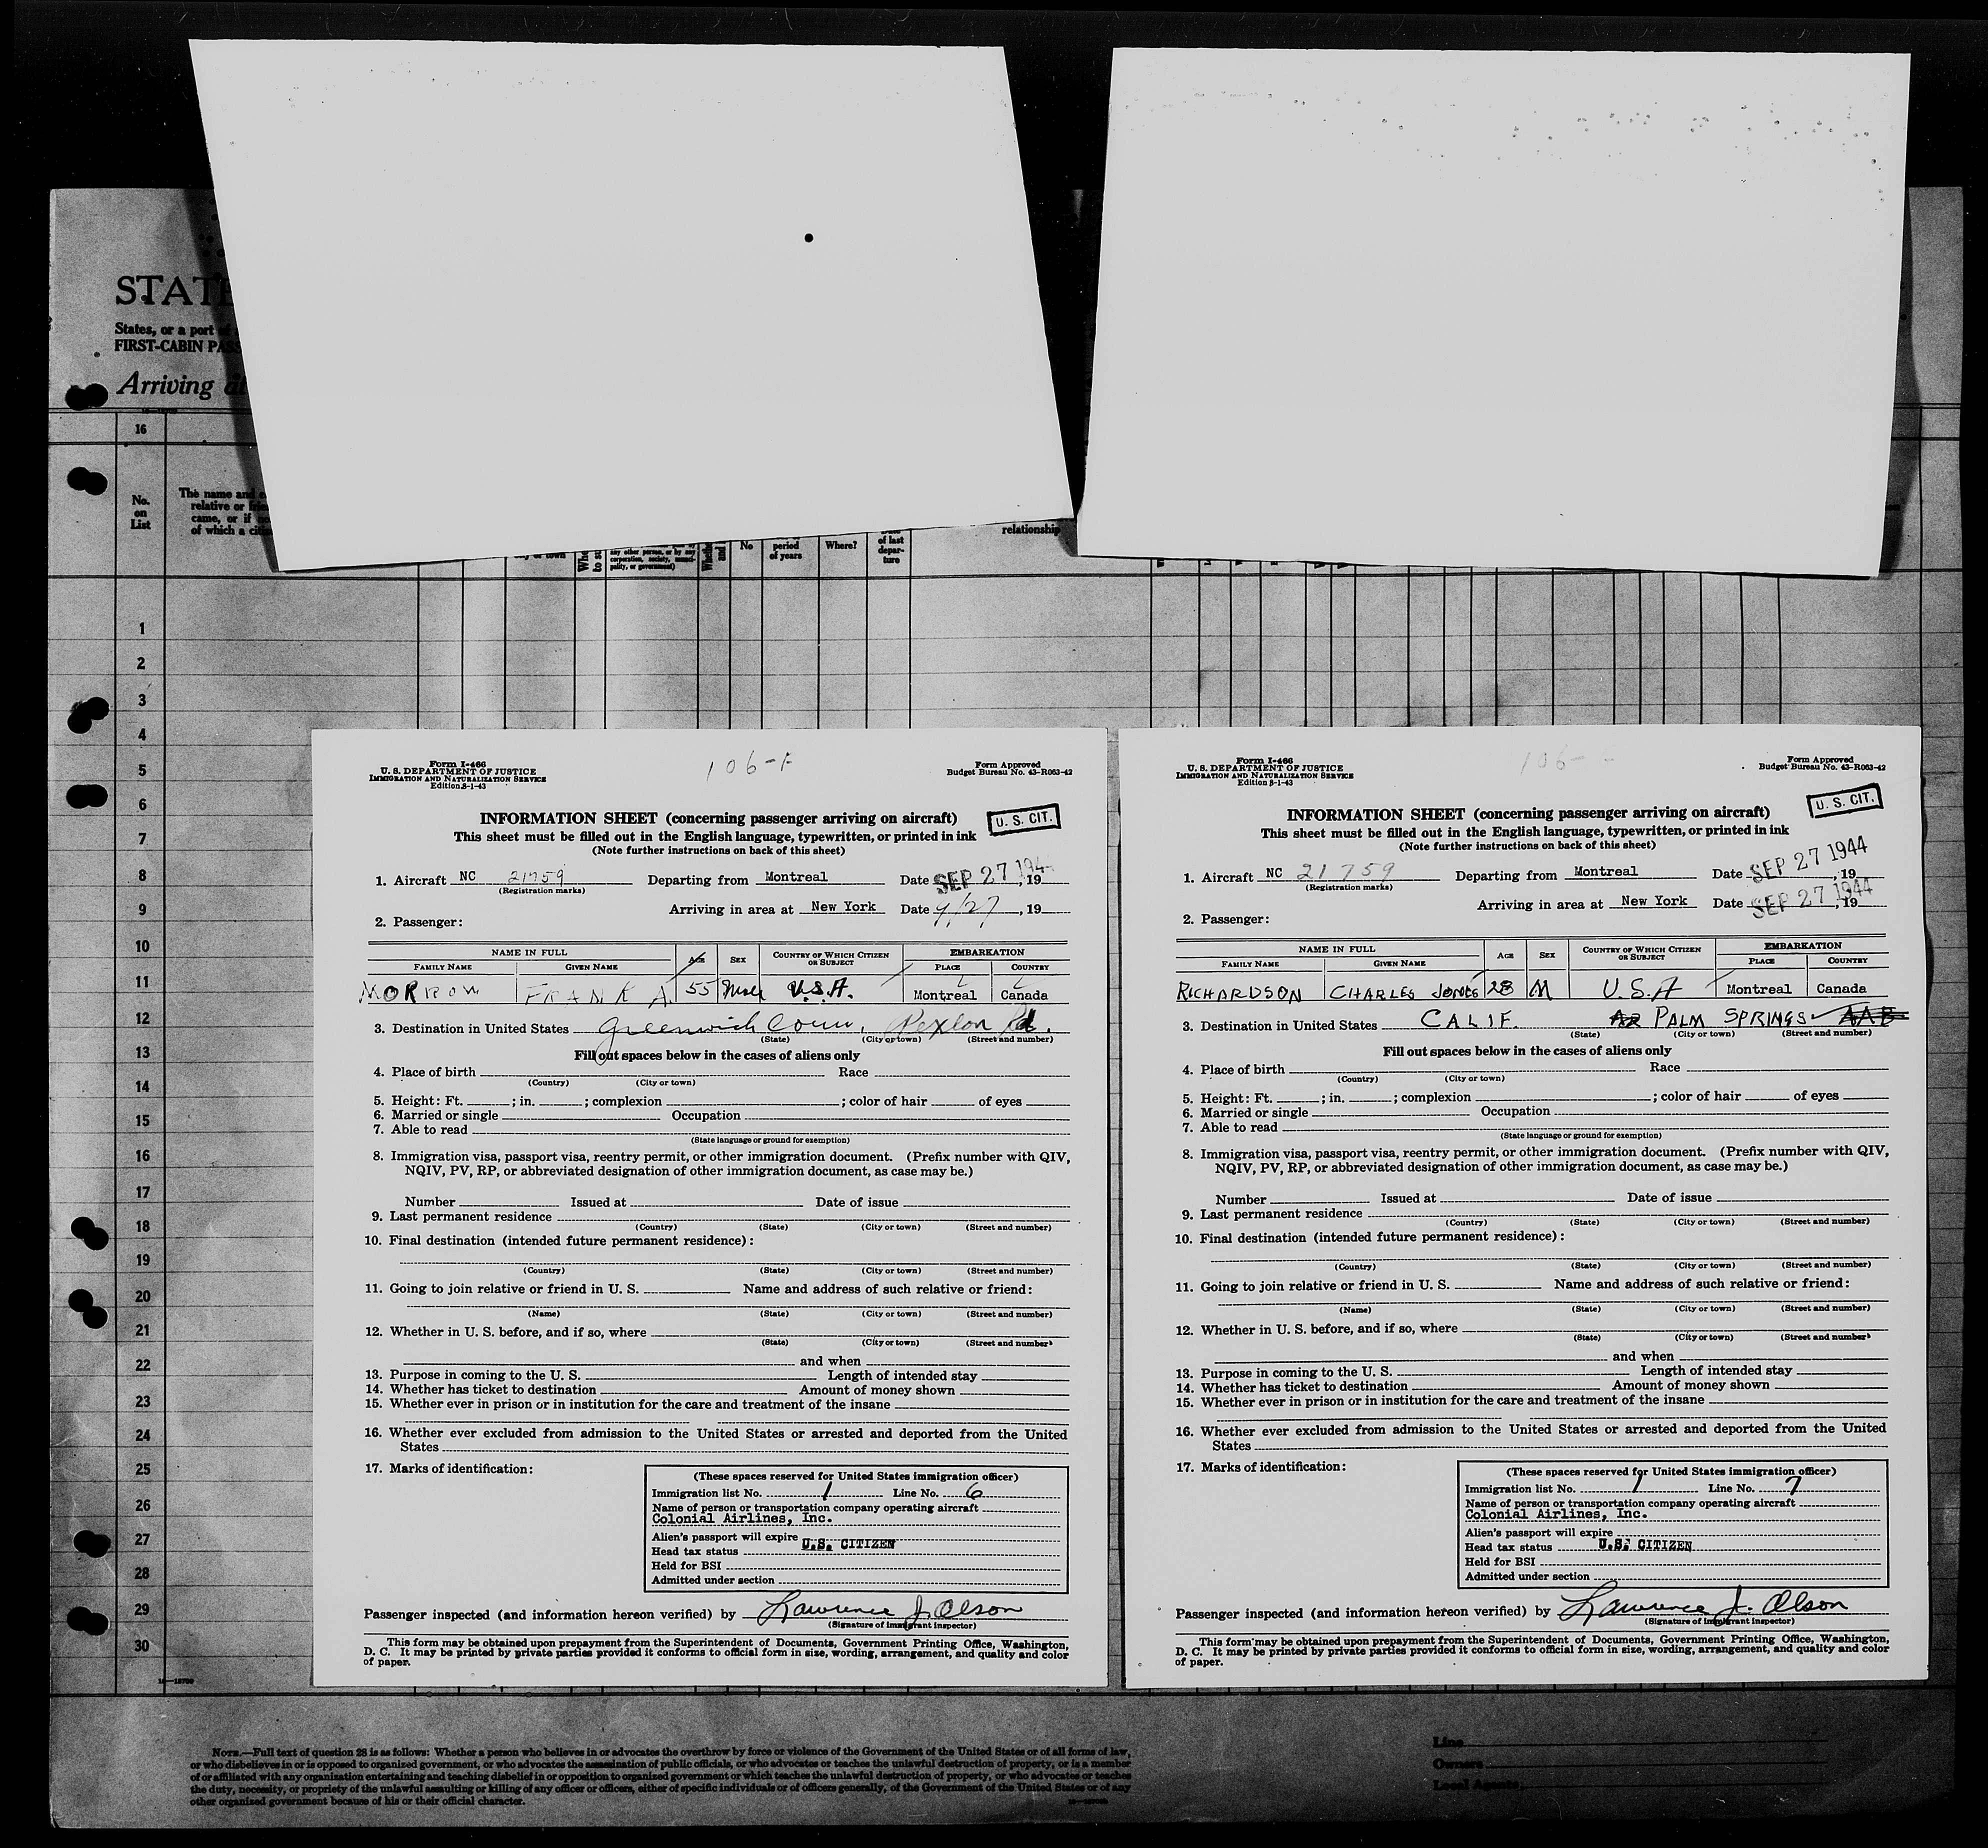 STATE
States, or a port of
FIRST-CABIN PASS
Arriving at
16
No.
on
List
The name and
relative or
came, or if
of which a
any other person, or by any
corporation, society, munici-
pality, or government)
No
period
of years
Where?
of last
depar-
ture
relationship
1
2
3
4
5
6
7
8
9
10
11
12
13
14
15
16
17
18
19
20
21
22
23
24
25
26
27
28
29
30
Form I-466
U. S. DEPARTMENT OF JUSTICE
IMMIGRATION AND NATURALIZATION SERVICE
Edition 8-1-43
106-F
Form Approved
Budget Bureau No. 43-R063-42
INFORMATION SHEET (concerning passenger arriving on aircraft)
U. S. CIT.
This sheet must be filled out in the English language, typewritten, or printed in ink
(Note further instructions on back of this sheet)
1. Aircraft NC 21759 Departing from Montreal Date SEP 27 1944, 19
(Registration marks)
Arriving in area at New York Date 9/27, 19
2. Passenger:
NAME IN FULL AGE SEX COUNTRY OF WHICH CITIZEN OR SUBJECT EMBARKATION
FAMILY NAME GIVEN NAME PLACE COUNTRY
MORROW FRANK A. 55 Male U.S.A. Montreal Canada
3. Destination in United States Greenwich Conn. Pexlon Rd.
(State) (City or town) (Street and number)
Fill out spaces below in the cases of aliens only
4. Place of birth Race
(Country) (City or town)
5. Height: Ft. ; in. ; complexion ; color of hair of eyes
6. Married or single Occupation
7. Able to read
(State language or ground for exemption)
8. Immigration visa, passport visa, reentry permit, or other immigration document. (Prefix number with QIV,
NQIV, PV, RP, or abbreviated designation of other immigration document, as case may be.)
Number Issued at Date of issue
9. Last permanent residence
(Country) (State) (City or town) (Street and number)
10. Final destination (intended future permanent residence):
(Country) (State) (City or town) (Street and number)
11. Going to join relative or friend in U. S. Name and address of such relative or friend:
(Name) (State) (City or town) (Street and number)
12. Whether in U. S. before, and if so, where
(State) (City or town) (Street and number)
and when
13. Purpose in coming to the U. S. Length of intended stay
14. Whether has ticket to destination Amount of money shown
15. Whether ever in prison or in institution for the care and treatment of the insane
16. Whether ever excluded from admission to the United States or arrested and deported from the United
States
17. Marks of identification:
(These spaces reserved for United States immigration officer)
Immigration list No. 1 Line No. 6
Name of person or transportation company operating aircraft
Colonial Airlines, Inc.
Alien's passport will expire
Head tax status U.S. CITIZEN
Held for BSI
Admitted under section
Passenger inspected (and information hereon verified) by Lawrence J. Olson
(Signature of immigrant inspector)
This form may be obtained upon prepayment from the Superintendent of Documents, Government Printing Office, Washington,
D. C. It may be printed by private parties provided it conforms to official form in size, wording, arrangement, and quality and color
of paper.
Form I-466
U. S. DEPARTMENT OF JUSTICE
IMMIGRATION AND NATURALIZATION SERVICE
Edition 8-1-43
106-
Form Approved
Budget Bureau No. 43-R063-42
INFORMATION SHEET (concerning passenger arriving on aircraft)
U. S. CIT.
This sheet must be filled out in the English language, typewritten, or printed in ink
(Note further instructions on back of this sheet)
1. Aircraft NC 21759 Departing from Montreal Date SEP 27 1944, 19
(Registration marks)
Arriving in area at New York Date SEP 27 1944, 19
2. Passenger:
NAME IN FULL AGE SEX COUNTRY OF WHICH CITIZEN OR SUBJECT EMBARKATION
FAMILY NAME GIVEN NAME PLACE COUNTRY
RICHARDSON CHARLES JONES 28 M U.S.A Montreal Canada
3. Destination in United States CALIF. PALM SPRINGS AAB
(State) (City or town) (Street and number)
Fill out spaces below in the cases of aliens only
4. Place of birth Race
(Country) (City or town)
5. Height: Ft. ; in. ; complexion ; color of hair of eyes
6. Married or single Occupation
7. Able to read
(State language or ground for exemption)
8. Immigration visa, passport visa, reentry permit, or other immigration document. (Prefix number with QIV,
NQIV, PV, RP, or abbreviated designation of other immigration document, as case may be.)
Number Issued at Date of issue
9. Last permanent residence
(Country) (State) (City or town) (Street and number)
10. Final destination (intended future permanent residence):
(Country) (State) (City or town) (Street and number)
11. Going to join relative or friend in U. S. Name and address of such relative or friend:
(Name) (State) (City or town) (Street and number)
12. Whether in U. S. before, and if so, where
(State) (City or town) (Street and number)
and when
13. Purpose in coming to the U. S. Length of intended stay
14. Whether has ticket to destination Amount of money shown
15. Whether ever in prison or in institution for the care and treatment of the insane
16. Whether ever excluded from admission to the United States or arrested and deported from the United
States
17. Marks of identification:
(These spaces reserved for United States immigration officer)
Immigration list No. 1 Line No. 7
Name of person or transportation company operating aircraft
Colonial Airlines, Inc.
Alien's passport will expire
Head tax status U.S. CITIZEN
Held for BSI
Admitted under section
Passenger inspected (and information hereon verified) by Lawrence J. Olson
(Signature of immigrant inspector)
This form may be obtained upon prepayment from the Superintendent of Documents, Government Printing Office, Washington,
D. C. It may be printed by private parties provided it conforms to official form in size, wording, arrangement, and quality and color
of paper.
NOTE.—Full text of question 28 is as follows: Whether a person who believes in or advocates the overthrow by force or violence of the Government of the United States or of all forms of law,
or who disbelieves in or is opposed to organized government, or who advocates the assassination of public officials, or who advocates or teaches the unlawful destruction of property, or is a member
of or affiliated with any organization entertaining and teaching disbelief in or opposition to organized government or which teaches the unlawful destruction of property, or who advocates or teaches
the duty, necessity, or propriety of the unlawful assaulting or killing of any officer or officers, either of specific individuals or of officers generally, of the Government of the United States or of any
other organized government because of his or their official character.
Line
Owners
Local Agents